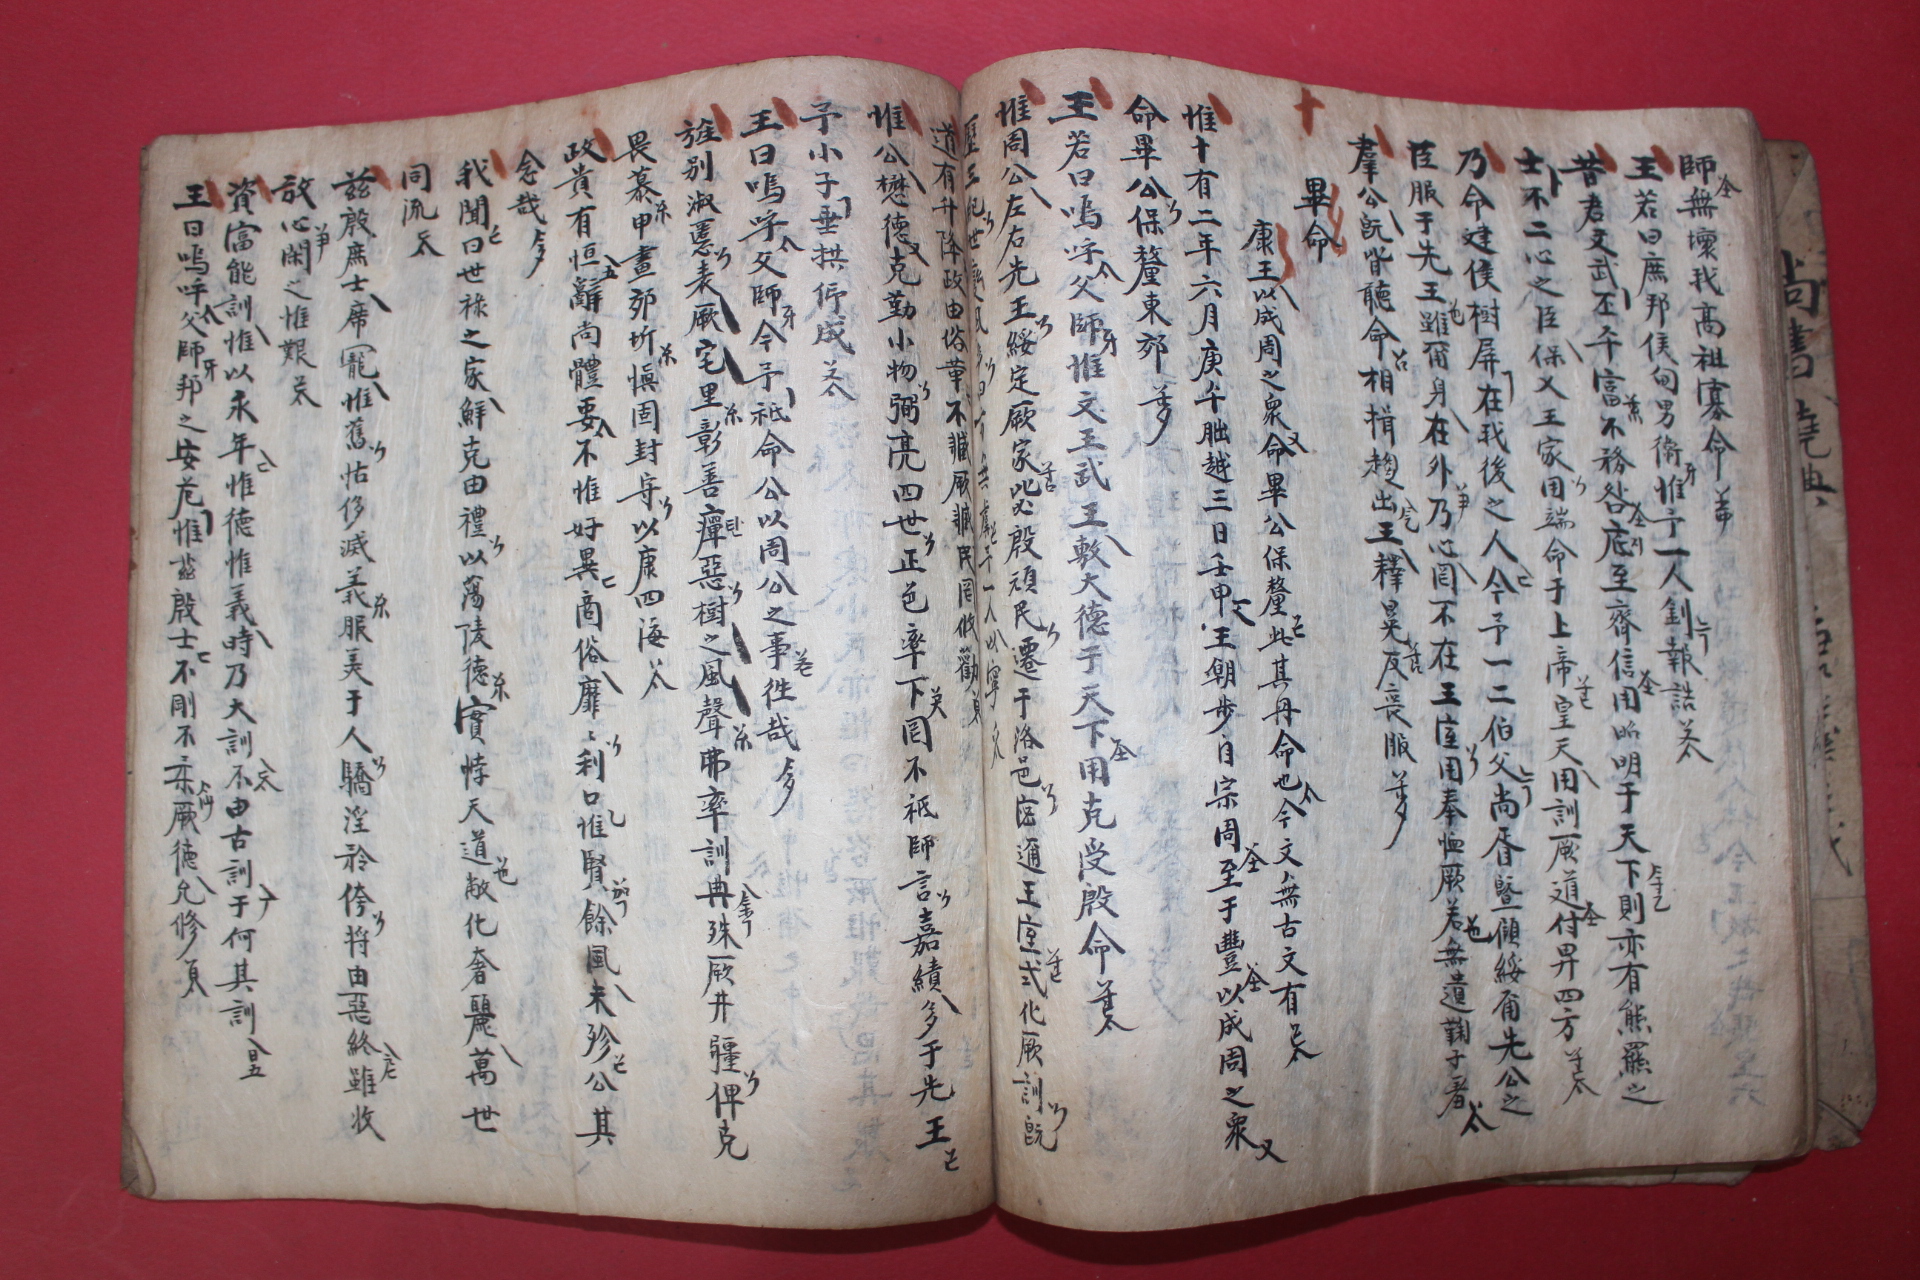 師無壞我高祖寡命
王若曰庶邦侯甸男衛惟予一人釗報誥
昔君文武丕平富不務咎底至齊信用昭明于天下則亦有熊羆之
士不二心之臣保乂王家用端命于上帝皇天用訓厥道付畀四方
乃命建侯樹屏在我後之人今予一二伯父尚胥曁顧綏爾先公之
臣服于先王雖爾身在外乃心罔不在王室用奉恤厥若無遺鞠子羞
羣公旣皆聽命相揖趨出王釋冕反喪服
畢命
康王以成周之衆命畢公保釐此其冊命也今文無古文有
惟十有二年六月庚午朏越三日壬申王朝步自宗周至于豊以成周之衆
命畢公保釐東郊
王若曰嗚呼父師惟文王武王敷大德于天下用克受殷命
惟周公左右先王綏定厥家毖殷頑民遷于洛邑密邇王室式化厥訓旣
歷三紀世變風移四方無虞予一人以寧
道有升降政由俗革不臧厥臧民罔攸勸
惟公懋德克勤小物弼亮四世正色率下罔不祗師言嘉績多于先王
予小子垂拱仰成
王曰嗚呼父師今予祗命公以周公之事徃哉
旌別淑慝表厥宅里彰善癉惡樹之風聲弗率訓典殊厥井疆俾克
畏慕申畫郊圻愼固封守以康四海
政貴有恒辭尚體要不惟好異商俗靡靡利口惟賢餘風未殄公其
念哉
我聞曰世祿之家鮮克由禮以蕩陵德實悖天道敝化奢麗萬世
同流
玆殷庶士席寵惟舊怙侈滅義服美于人驕淫矜侉將由惡終雖收
放心閑之惟艱
資富能訓惟以永年惟德惟義時乃大訓不由古訓于何其訓
王曰嗚呼父師邦之安危惟玆殷士不剛不柔厥德允修